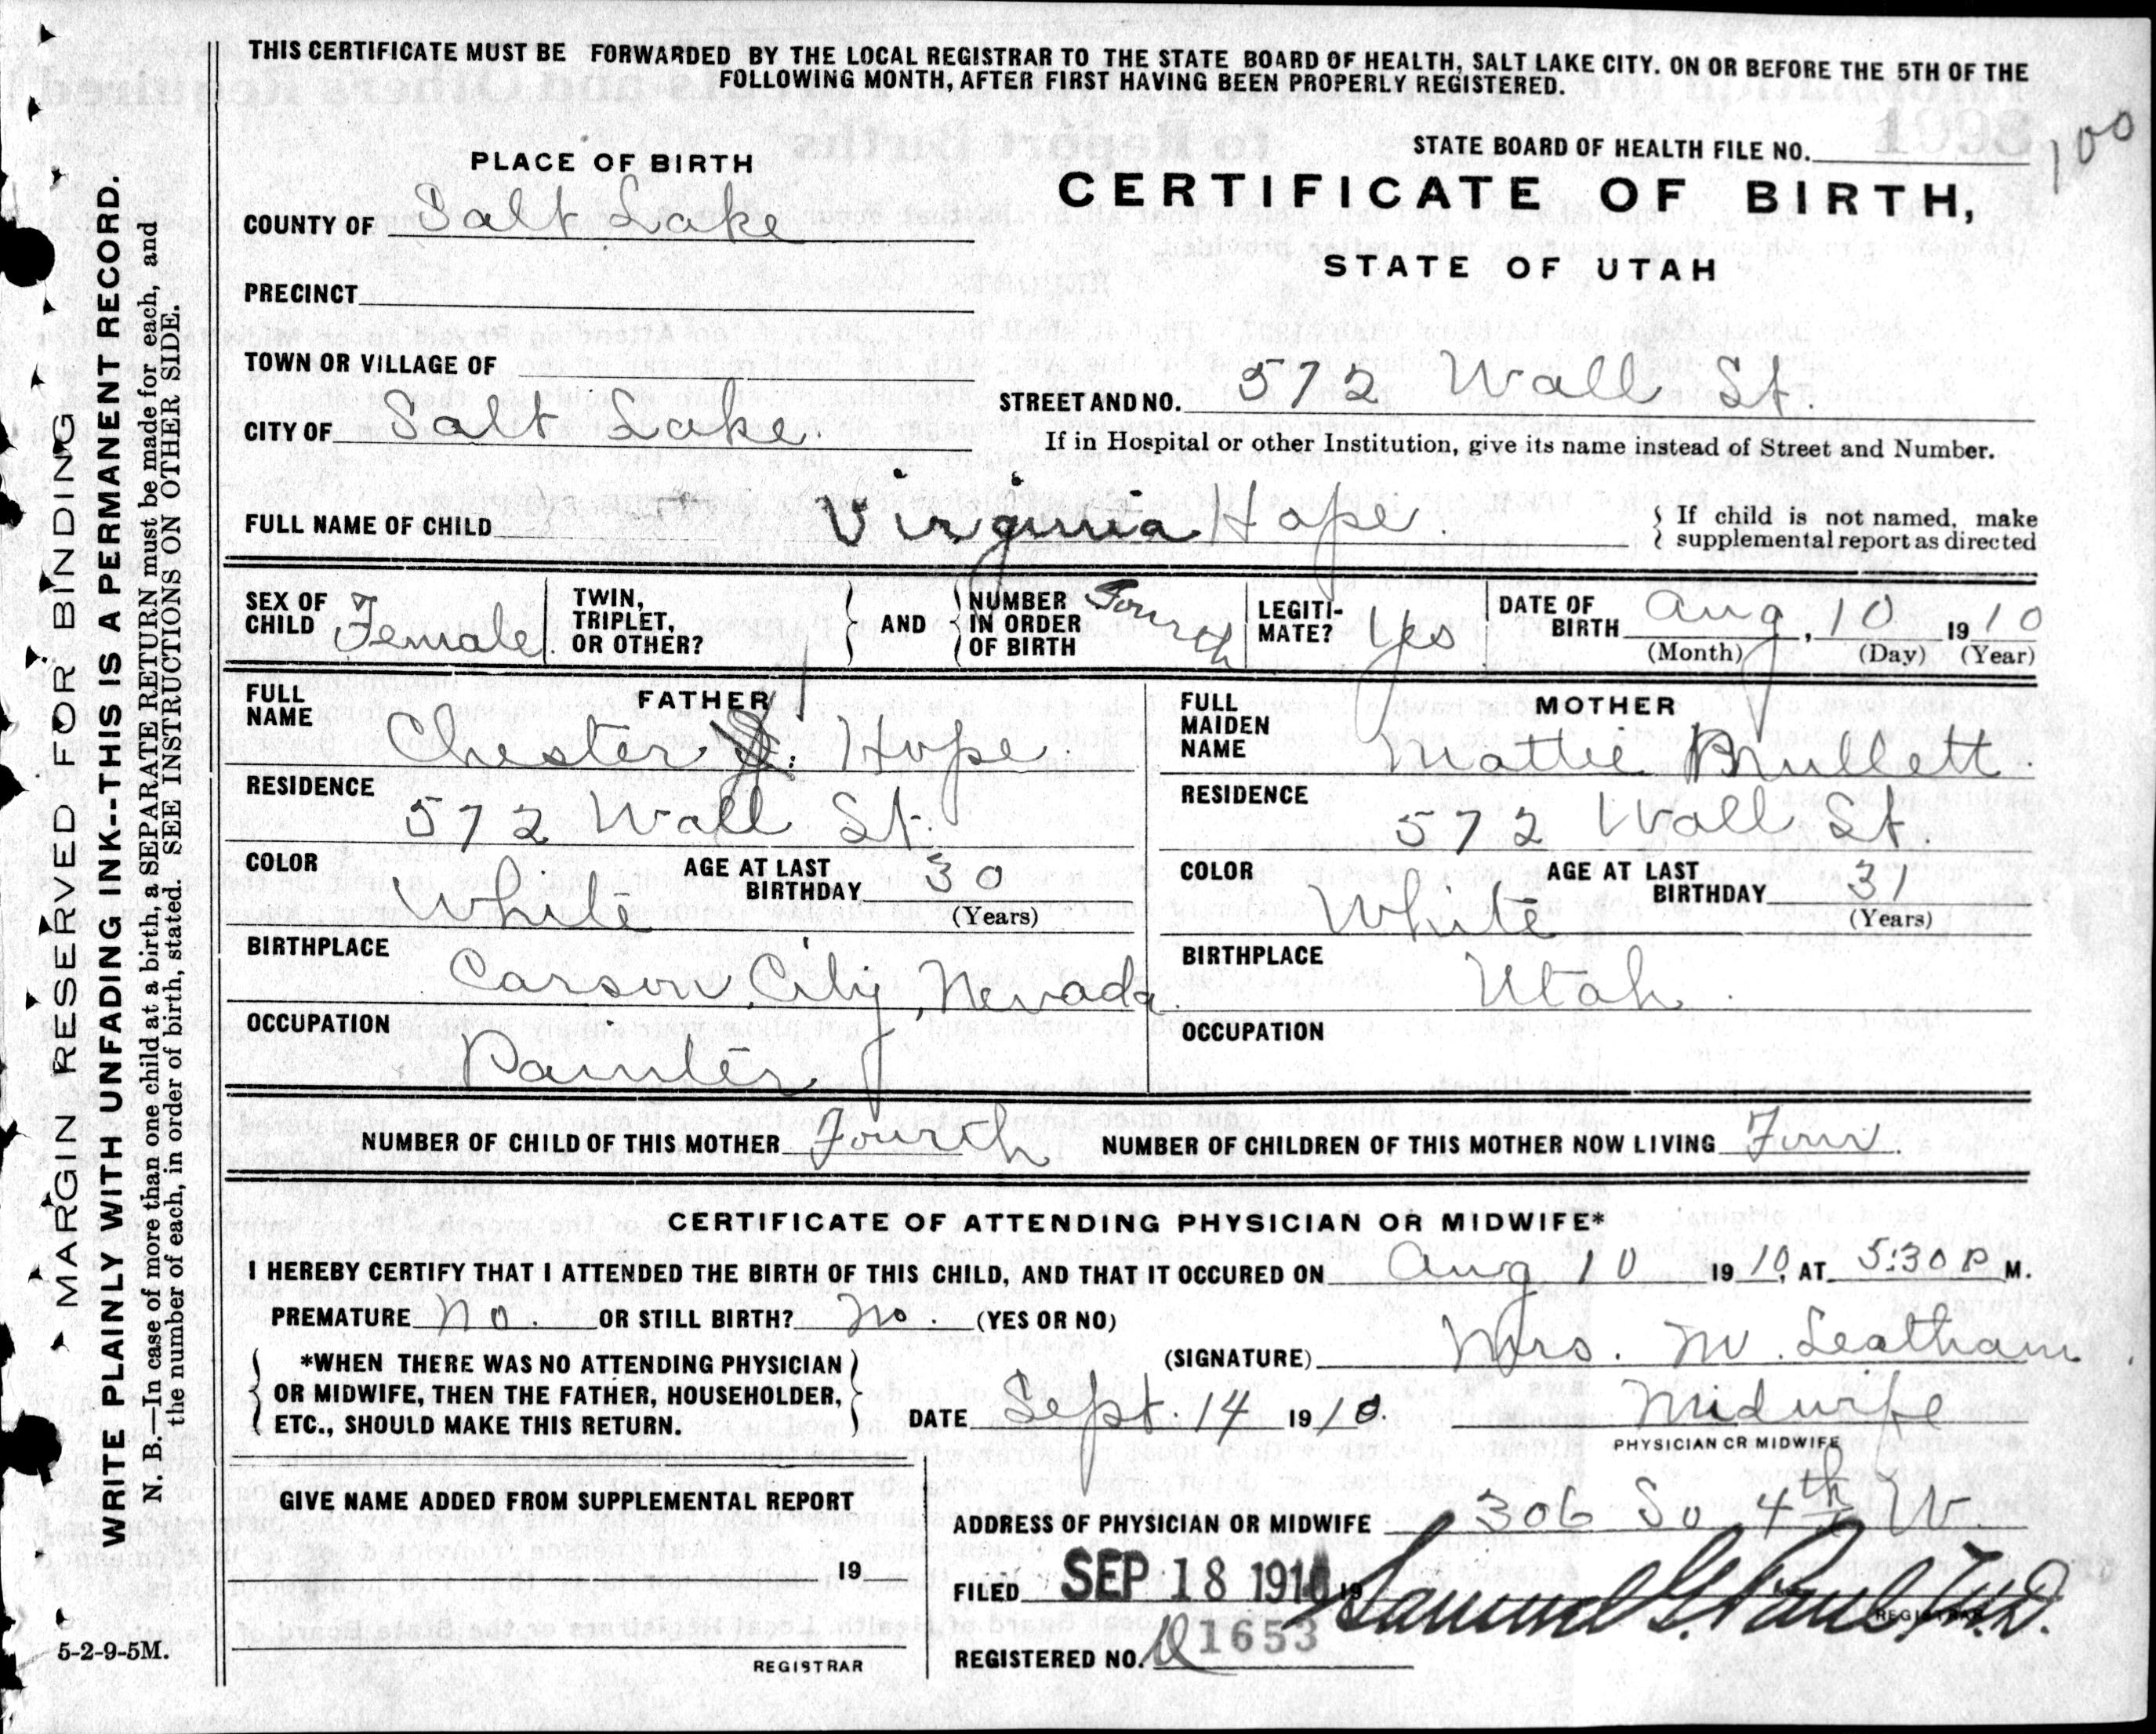 THIS CERTIFICATE MUST BE FORWARDED BY THE LOCAL REGISTRAR TO THE STATE BOARD OF HEALTH, SALT LAKE CITY. ON OR BEFORE THE 5TH OF THE
FOLLOWING MONTH, AFTER FIRST HAVING BEEN PROPERLY REGISTERED.
MARGIN RESERVED FOR BINDING
WRITE PLAINLY WITH UNFADING INK--THIS IS A PERMANENT RECORD.
N. B.—In case of more than one child at a birth, a SEPARATE RETURN must be made for each, and
the number of each, in order of birth, stated. SEE INSTRUCTIONS ON OTHER SIDE.
STATE BOARD OF HEALTH FILE NO. 100
PLACE OF BIRTH
CERTIFICATE OF BIRTH,
COUNTY OF Salt Lake
STATE OF UTAH
PRECINCT
TOWN OR VILLAGE OF
STREET AND NO. 572 Wall St.
CITY OF Salt Lake.
If in Hospital or other Institution, give its name instead of Street and Number.
FULL NAME OF CHILD Virginia Hope.
If child is not named, make
supplemental report as directed
SEX OF CHILD Female.
TWIN, TRIPLET, OR OTHER?
AND
NUMBER IN ORDER OF BIRTH Fourth
LEGITI-MATE? Yes
DATE OF BIRTH Aug, 10 1910
(Month) (Day) (Year)
FATHER
FULL NAME Chester J. Hope.
RESIDENCE 572 Wall St.
COLOR White
AGE AT LAST BIRTHDAY 30
(Years)
BIRTHPLACE Carson City, Nevada.
OCCUPATION Painter
MOTHER
FULL MAIDEN NAME Mattie Brullett.
RESIDENCE 572 Wall St.
COLOR White
AGE AT LAST BIRTHDAY 31
(Years)
BIRTHPLACE Utah.
OCCUPATION
NUMBER OF CHILD OF THIS MOTHER Fourth NUMBER OF CHILDREN OF THIS MOTHER NOW LIVING Four.
CERTIFICATE OF ATTENDING PHYSICIAN OR MIDWIFE*
I HEREBY CERTIFY THAT I ATTENDED THE BIRTH OF THIS CHILD, AND THAT IT OCCURED ON Aug 10 1910, AT 5:30 P M.
PREMATURE no. OR STILL BIRTH? no. (YES OR NO)
*WHEN THERE WAS NO ATTENDING PHYSICIAN
OR MIDWIFE, THEN THE FATHER, HOUSEHOLDER,
ETC., SHOULD MAKE THIS RETURN.
(SIGNATURE) Mrs. M. Leatham.
DATE Sept. 14 1910. Midwife
PHYSICIAN OR MIDWIFE
GIVE NAME ADDED FROM SUPPLEMENTAL REPORT
19
REGISTRAR
ADDRESS OF PHYSICIAN OR MIDWIFE 306 So 4th W.
FILED SEP 18 1910 19 Samuel G. Paul, M.D.
REGISTRAR
REGISTERED NO. 1653
5-2-9-5M.